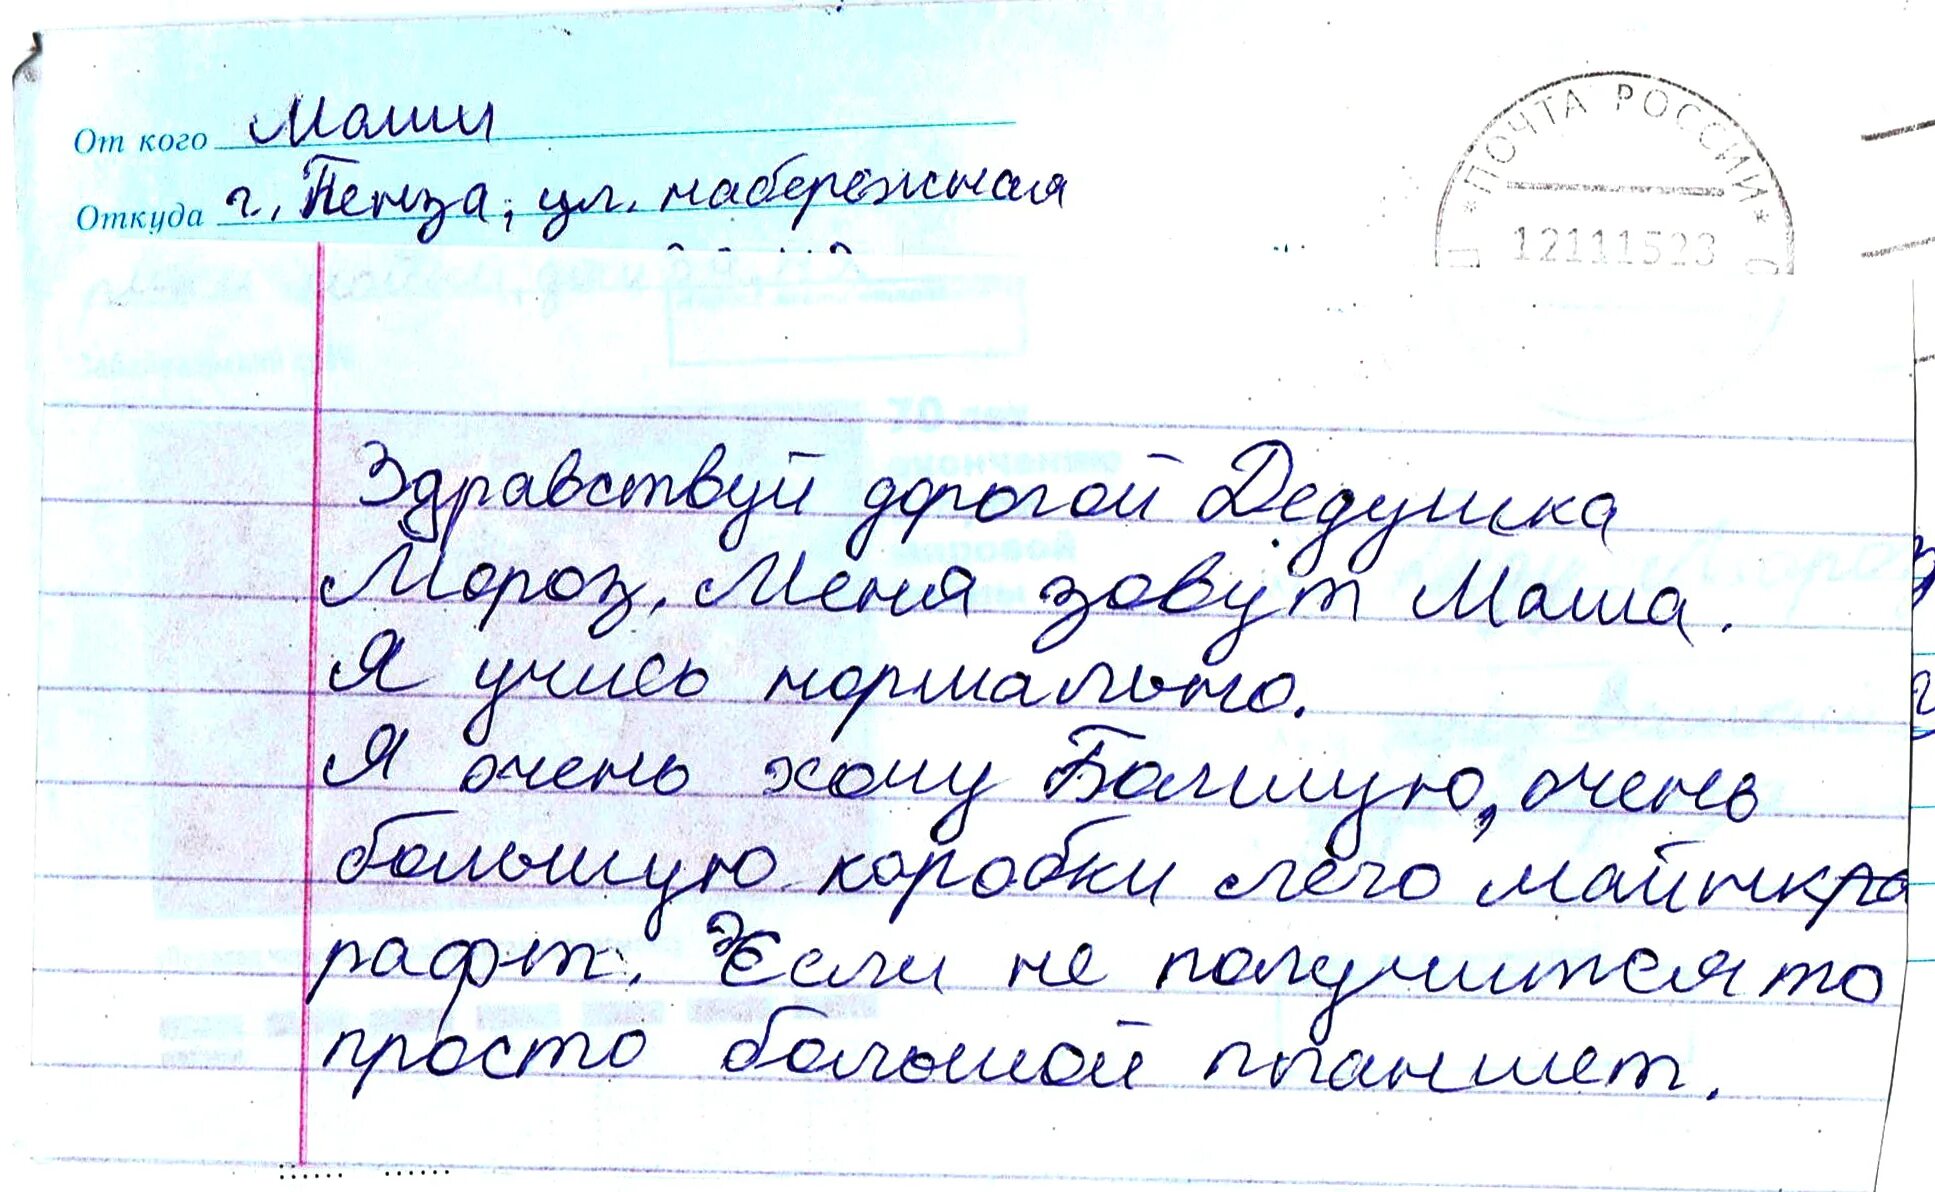 От кого Маши
Откуда г. Пенза, ул. набережная
*ПОЧТА РОССИИ*
12111523
Здравствуй дорогой Дедушка
Мороз. Меня зовут Маша.
Я учусь нормально.
Я очень хочу Болшую, очень
большую коробки лего майнкра
рафт. Если не получится то
просто большой планшет.